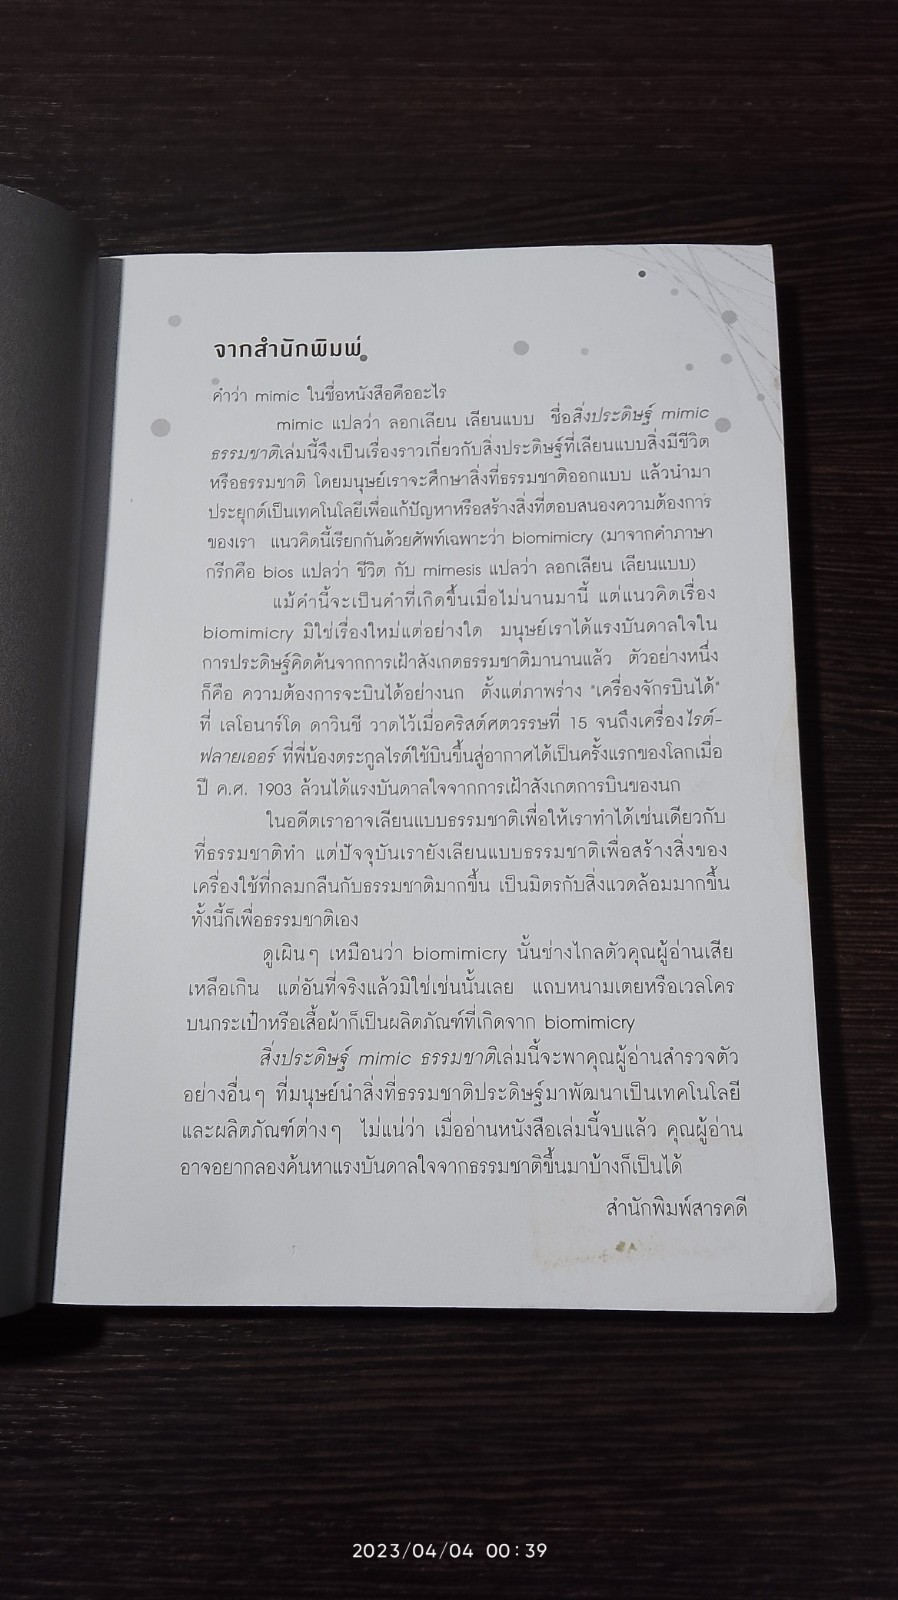 จากสำนักพิมพ์
คำว่า mimic ในชื่อหนังสือคืออะไร
mimic แปลว่า ลอกเลียน เลียนแบบ ชื่อสิ่งประดิษฐ์ mimic
ธรรมชาติเล่มนี้จึงเป็นเรื่องราวเกี่ยวกับสิ่งประดิษฐ์ที่เลียนแบบสิ่งมีชีวิต
หรือธรรมชาติ โดยมนุษย์เราจะศึกษาสิ่งที่ธรรมชาติออกแบบ แล้วนำมา
ประยุกต์เป็นเทคโนโลยีเพื่อแก้ปัญหาหรือสร้างสิ่งที่ตอบสนองความต้องการ
ของเรา แนวคิดนี้เรียกกันด้วยศัพท์เฉพาะว่า biomimicry (มาจากคำภาษา
กรีกคือ bios แปลว่า ชีวิต กับ mimesis แปลว่า ลอกเลียน เลียนแบบ)
แม้คำนี้จะเป็นคำที่เกิดขึ้นเมื่อไม่นานมานี้ แต่แนวคิดเรื่อง
biomimicry มิใช่เรื่องใหม่แต่อย่างใด มนุษย์เราได้แรงบันดาลใจใน
การประดิษฐ์คิดค้นจากการเฝ้าสังเกตธรรมชาติมานานแล้ว ตัวอย่างหนึ่ง
ก็คือ ความต้องการจะบินได้อย่างนก ตั้งแต่ภาพร่าง "เครื่องจักรบินได้"
ที่ เลโอนาร์โด ดาวินชี วาดไว้เมื่อคริสต์ศตวรรษที่ 15 จนถึงเครื่องไรต์-
ฟลายเออร์ ที่พี่น้องตระกูลไรต์ใช้บินขึ้นสู่อากาศได้เป็นครั้งแรกของโลกเมื่อ
ปี ค.ศ. 1903 ล้วนได้แรงบันดาลใจจากการเฝ้าสังเกตการบินของนก
ในอดีตเราอาจเลียนแบบธรรมชาติเพื่อให้เราทำได้เช่นเดียวกับ
ที่ธรรมชาติทำ แต่ปัจจุบันเรายังเลียนแบบธรรมชาติเพื่อสร้างสิ่งของ
เครื่องใช้ที่กลมกลืนกับธรรมชาติมากขึ้น เป็นมิตรกับสิ่งแวดล้อมมากขึ้น
ทั้งนี้ก็เพื่อธรรมชาติเอง
ดูเผินๆ เหมือนว่า biomimicry นั้นช่างไกลตัวคุณผู้อ่านเสีย
เหลือเกิน แต่อันที่จริงแล้วมิใช่เช่นนั้นเลย แถบหนามเตยหรือเวลโคร
บนกระเป๋าหรือเสื้อผ้าก็เป็นผลิตภัณฑ์ที่เกิดจาก biomimicry
สิ่งประดิษฐ์ mimic ธรรมชาติเล่มนี้จะพาคุณผู้อ่านสำรวจตัว
อย่างอื่นๆ ที่มนุษย์นำสิ่งที่ธรรมชาติประดิษฐ์มาพัฒนาเป็นเทคโนโลยี
และผลิตภัณฑ์ต่างๆ ไม่แน่ว่า เมื่ออ่านหนังสือเล่มนี้จบแล้ว คุณผู้อ่าน
อาจอยากลองค้นหาแรงบันดาลใจจากธรรมชาติขึ้นมาบ้างก็เป็นได้
สำนักพิมพ์สารคดี
2023/04/04 00:39